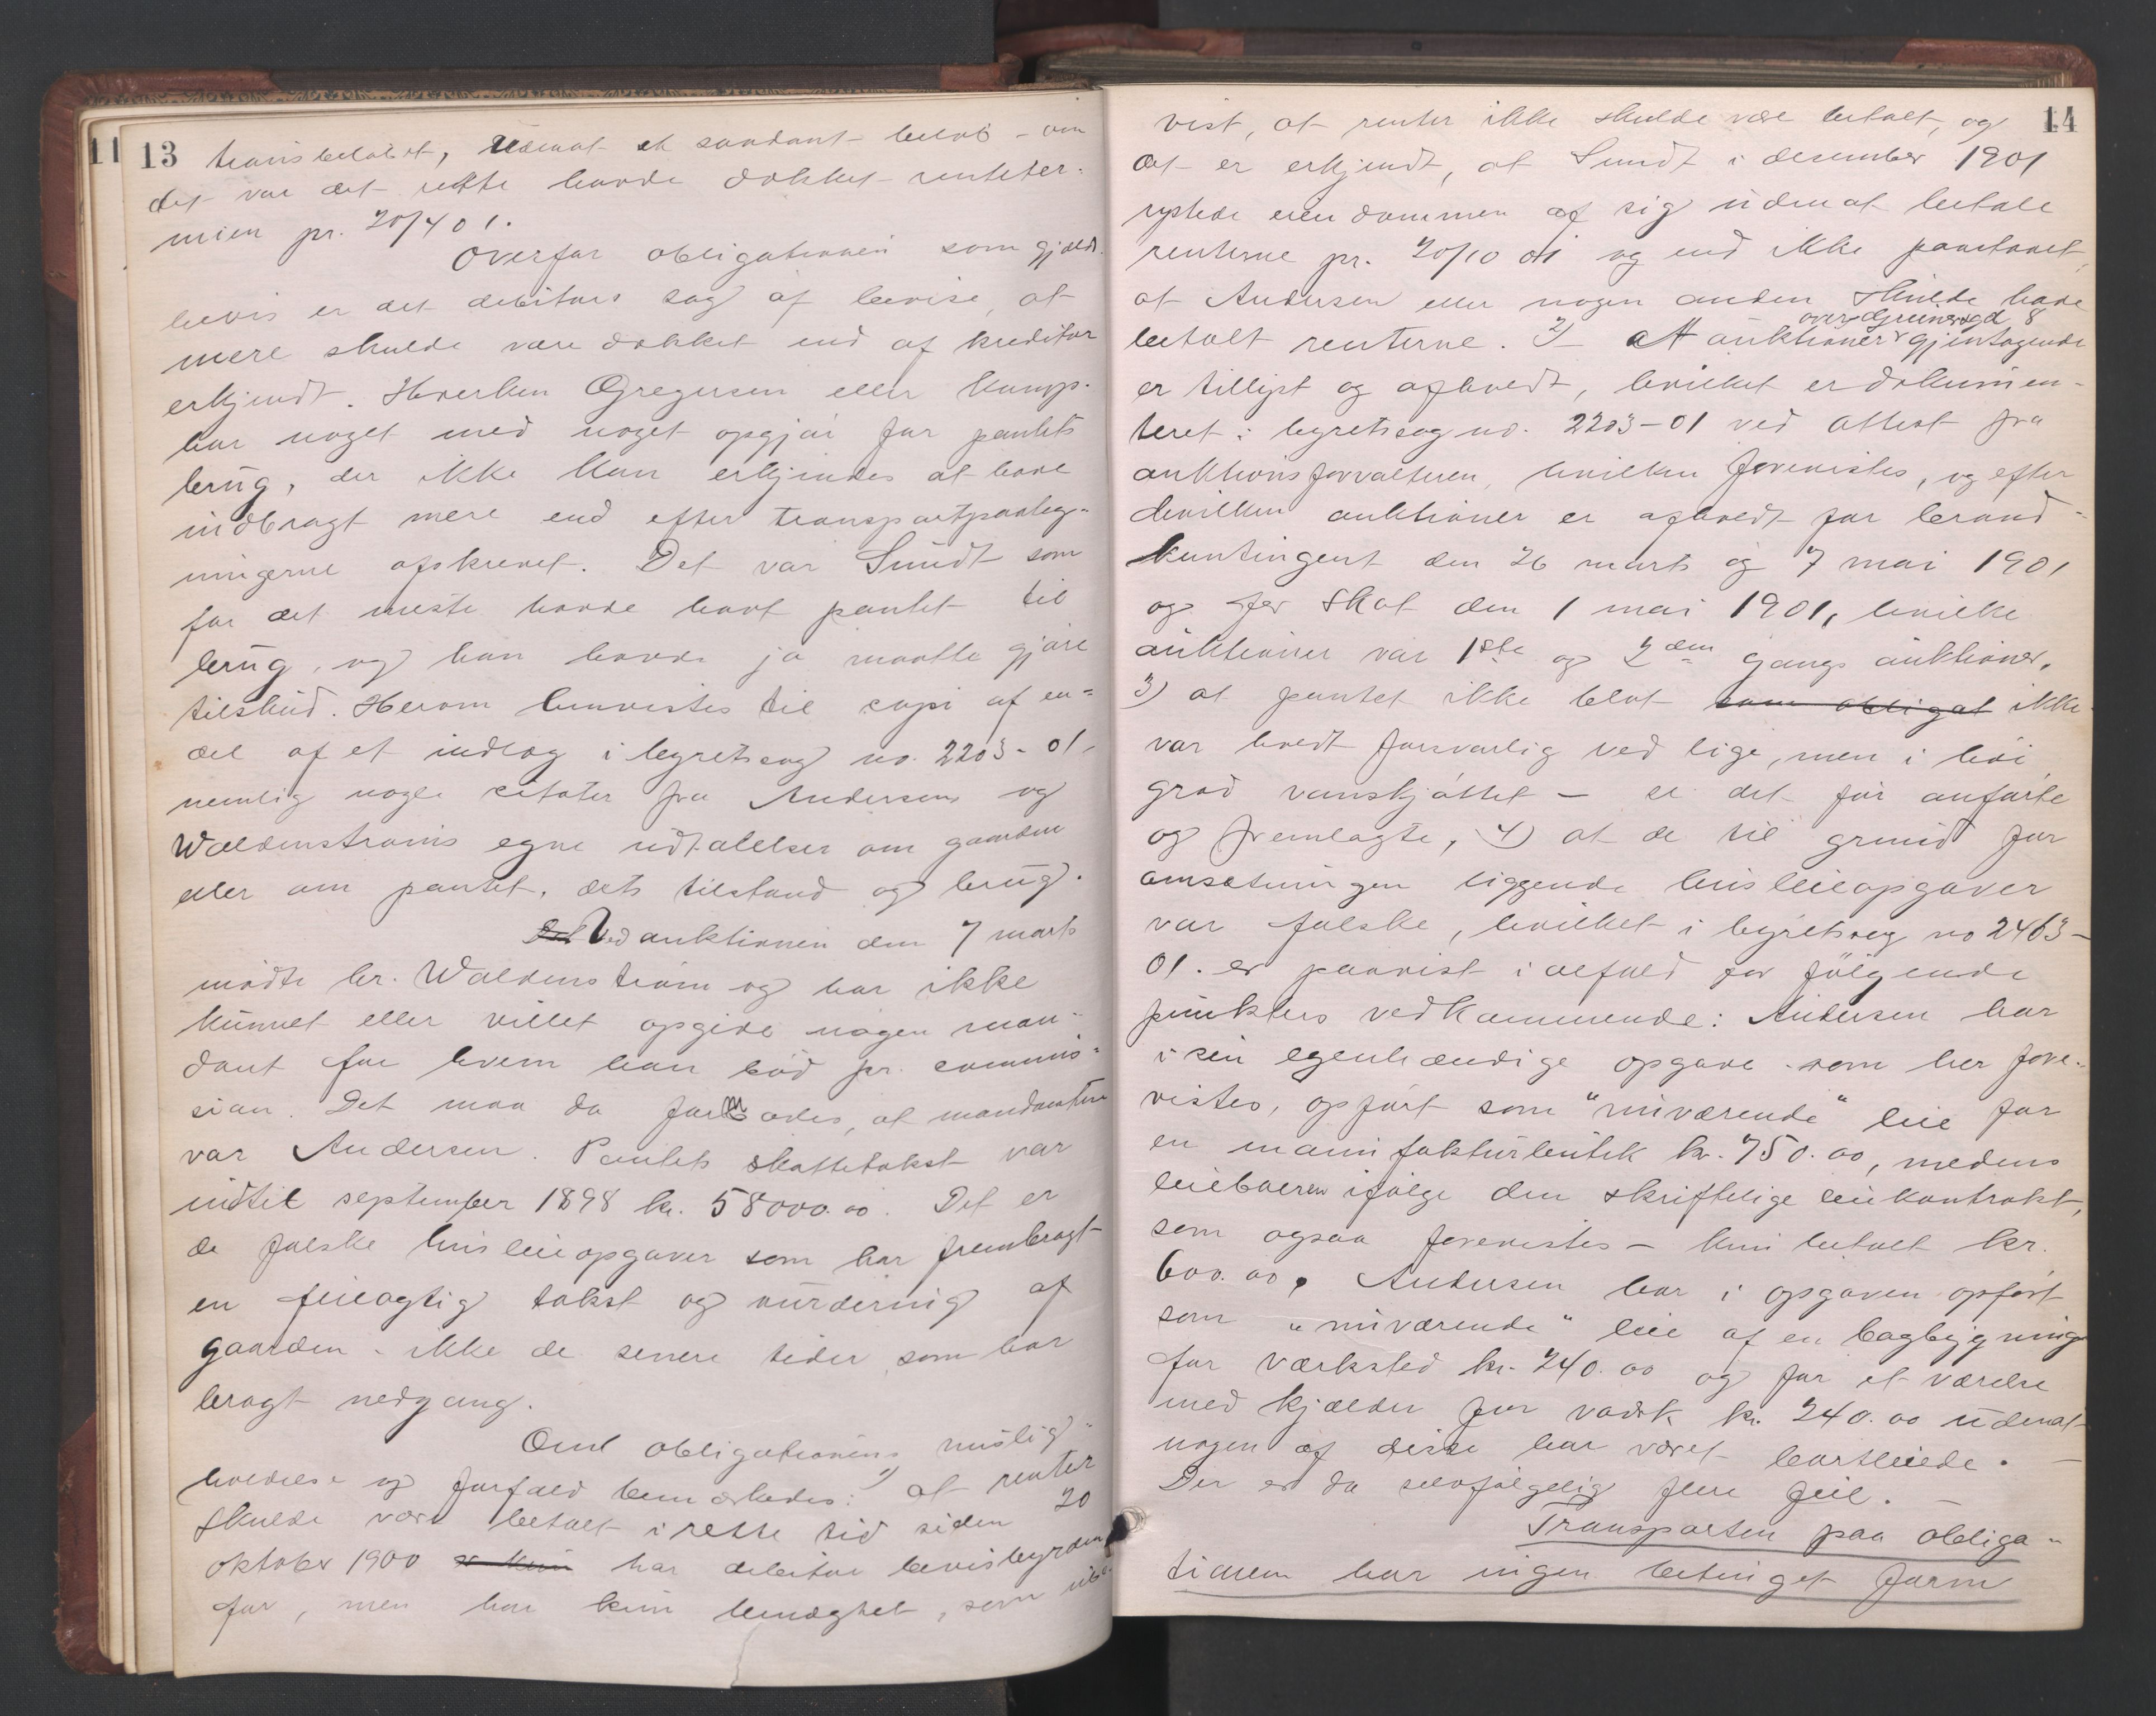 11
13
transbeløbet, udenat et saadant beløb – om
det var det rette havde dækket rentter-
minen pr. 20/4 01.
Overfor obligationen som gjælds-
bevis er det debitors sag af bevise, at
mere skulde være dækket end af kreditor
erkjendt. Hverken Gregersen eller Kamp-
har noget med noget opgjør for pantets
brug, der ikke kan erkjendes at have
indbragt mere end efter transportpaateg-
ningerne afskrevet. Det var Sundt som
for det meste havde havt pantet til
brug, og han havde jo maatte gjøre
tilskud. Herom henvistes til copi af en-
del af et indlæg i byretssag no. 2203-01,
nemlig nogle citater fra Andersens og
Waldenstrøms egne udtalelser om gaarden
eller om pantet, dets tilstand og brug.
Det Ved auktionen den 7 marts
mødte hr. Waldenstrøm og har ikke
kunnet eller villet opgive nogen man-
dant for hvem han bød pr. commis-
sion. Det maa da formodes, at mandanten
var Andersen. Pantets skattetakst var
indtil september 1898 kr. 58000.00. Det er
de falske husleieopgaver som har frembragt
en feilagtig takst og vurdering af
gaarden – ikke de senere tider som har
bragt nedgang.
Om obligationens mislig-
holdelse og forfald bemærkedes: 1) at renter
skulde være betalt i rette tid siden 20
oktober 1900 har debitor bevisbyrden
for, men har kun benægtet, som
14
vist, at renter ikke skulde være betalt, og
det er erkjendt, at Sundt i desember 1901
rystede eiendommen af sig udenat betale
renterne pr. 20/10 01 og end ikke paastaaet,
at Andersen eller nogen anden skulde have
over Grünersgd 8
betalt renterne. 2) – At auktioner gjentagende
er tillyst og afholdt, hvilket er dokumen-
teret i byretssag no. 2203-01 ved attest fra
auktionsforvalteren, hvilken forevistes, og efter
hvilken auktioner er afholdt for brand-
kontingent den 26 marts og 7 mai 1901
og for Skat den 1 mai 1901, hvilke
auktioner var 1ste og 2den gangs auktioner.
3) at pantet ikke blot som obligat ikke
var holdt forsvarlig ved lige, men i høi
grad vanskjøttet – se det før anførte
og fremlagte, 4) at de til grund for
omsætningen liggende husleieopgaver
var falske, hvilket i byretssag no 2463-
01. er paavist i alfald for følgende
punkters vedkommende: Andersen har
i sin egenhændige opgave som her fore-
vistes, opført som "nuværende" leie for
en manufakturbutik kr. 750.00, medens
leieboeren ifølge den skriftelige leiekontrakt,
som ogsaa forevistes – kun betalt kr.
600.00. Andersen har i opgaven opført
som "nuværende" leie af en bagbygning
for værksted kr. 240.00 og for et værelse
med kjælder for vadsk kr. 240.00 udenat
nogen af disse har været bortleiede. –
Der er da selvfølgelig flere feil. –
Transporten paa obliga-
tionen har ingen betinget form